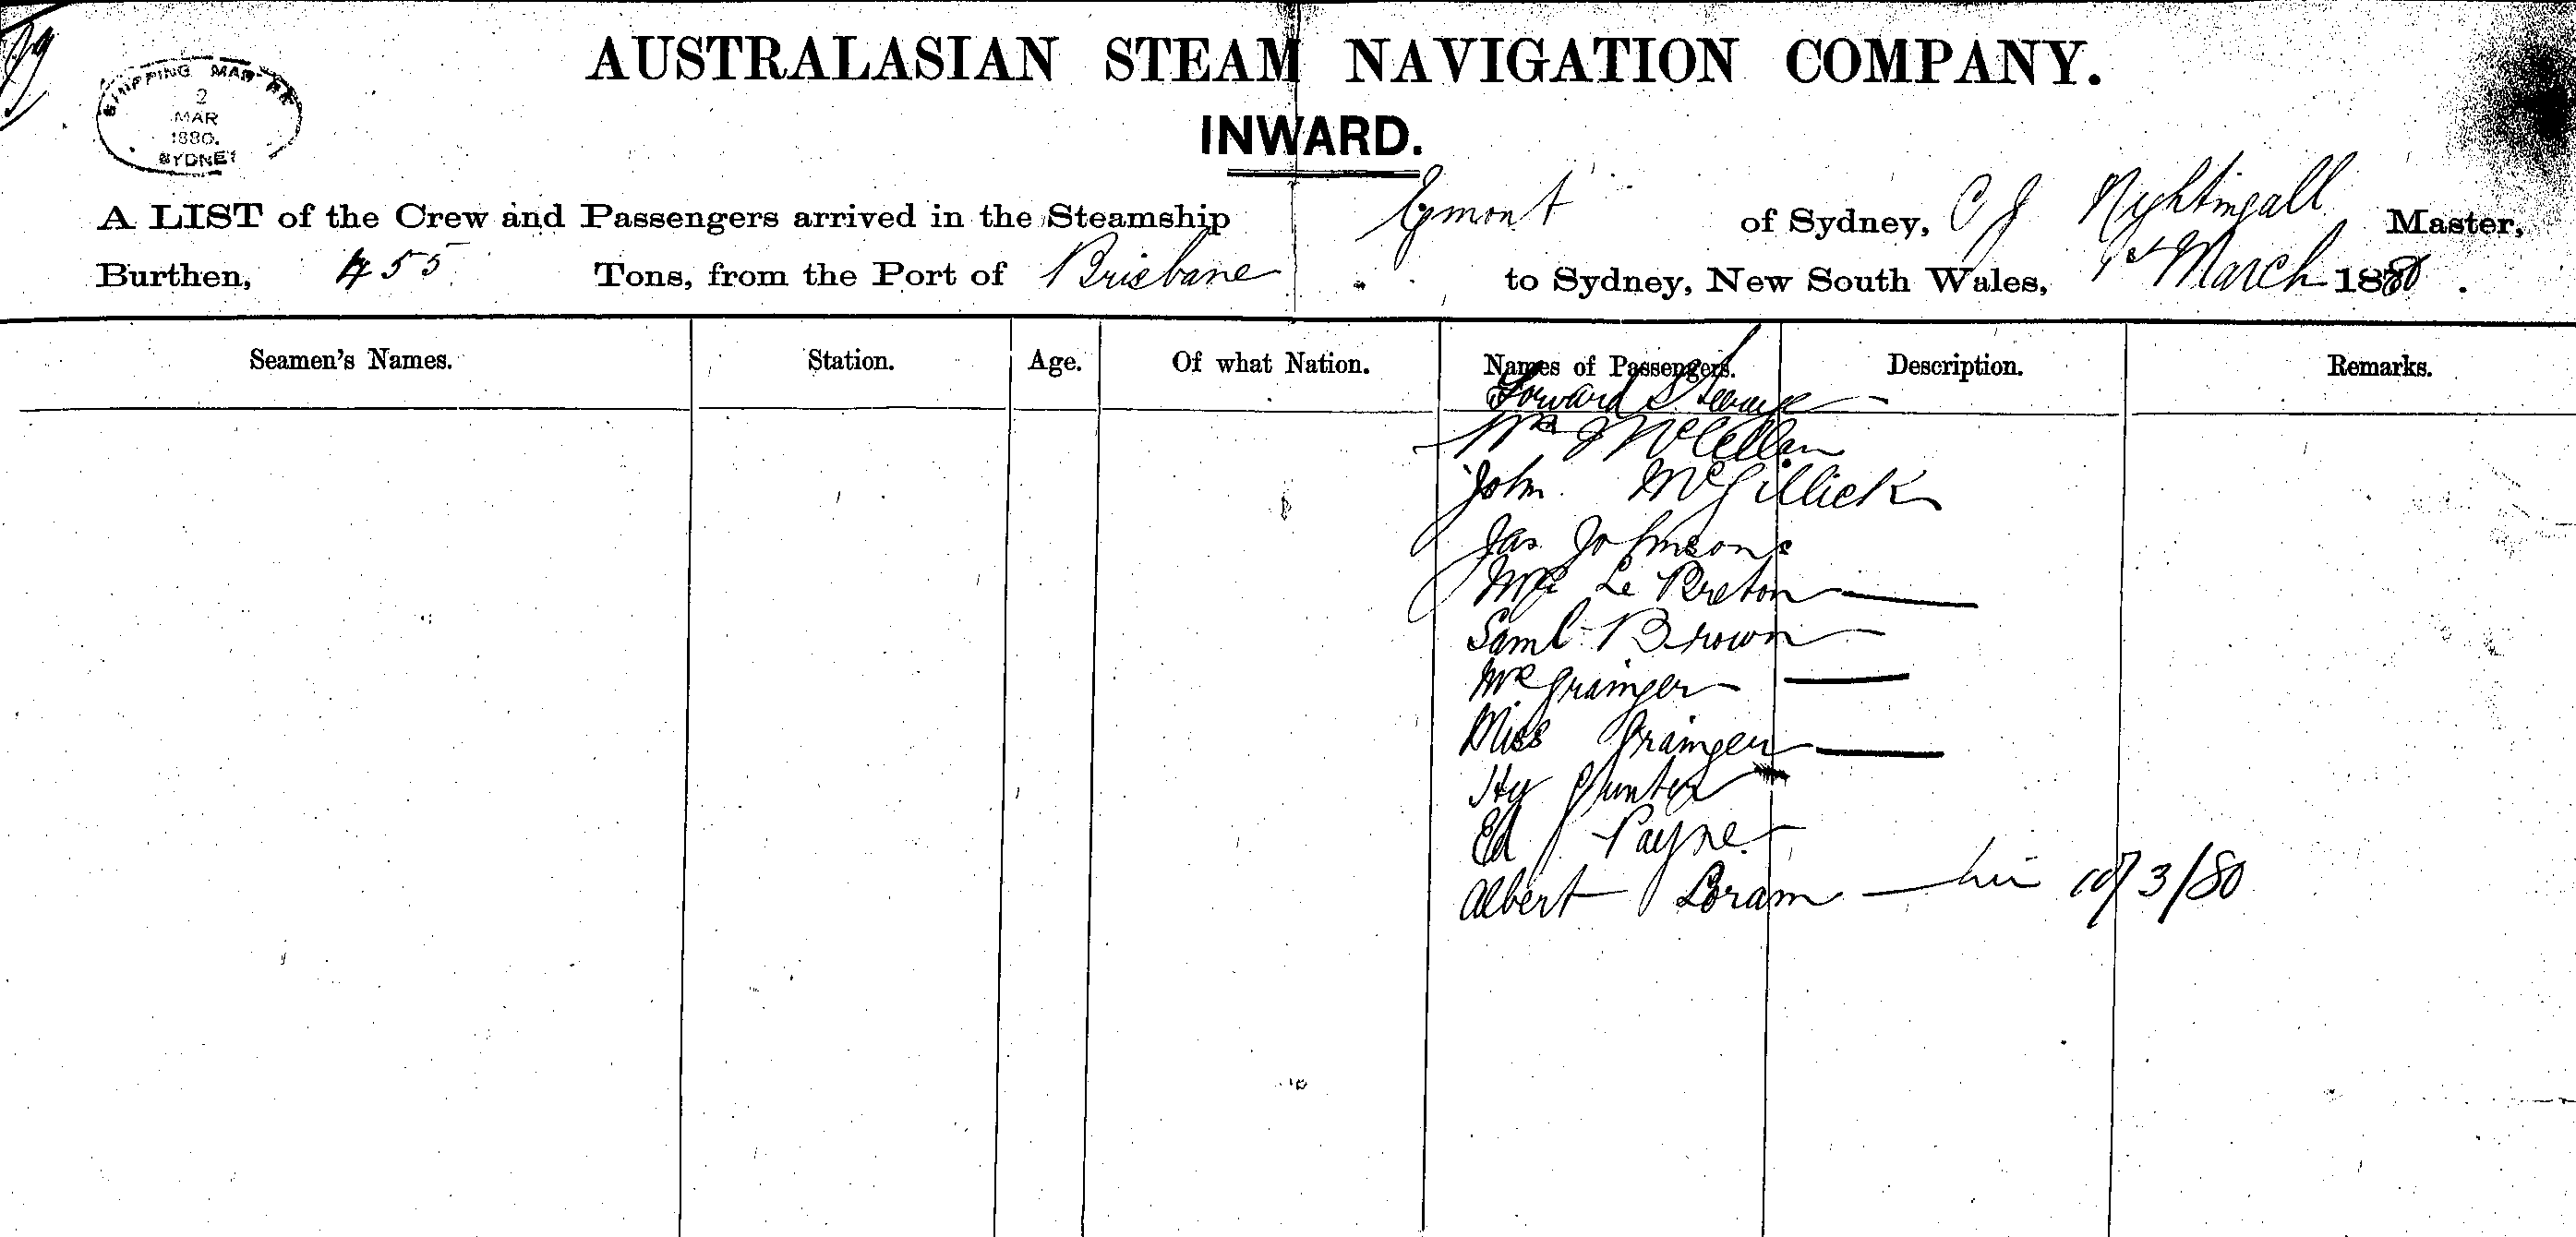 AUSTRALASIAN STEAM NAVIGATION COMPANY.
SHIPPING MASTER
2
MAR
1880.
SYDNEY
INWARD.
A LIST of the Crew and Passengers arrived in the Steamship Egmont of Sydney, C J Nightingall Master,
Burthen, 455 Tons, from the Port of Brisbane to Sydney, New South Wales, 1st March 1880.
Seamen's Names. Station. Age. Of what Nation. Names of Passengers. Description. Remarks.
Forward Steerage
J McLellan
John McGillick
Jas Johnson
Le Breton
Saml Brown
Mr Grainger
Miss Grainger
Hy Gunter
Ed Payne
Albert Loram 10/3/80